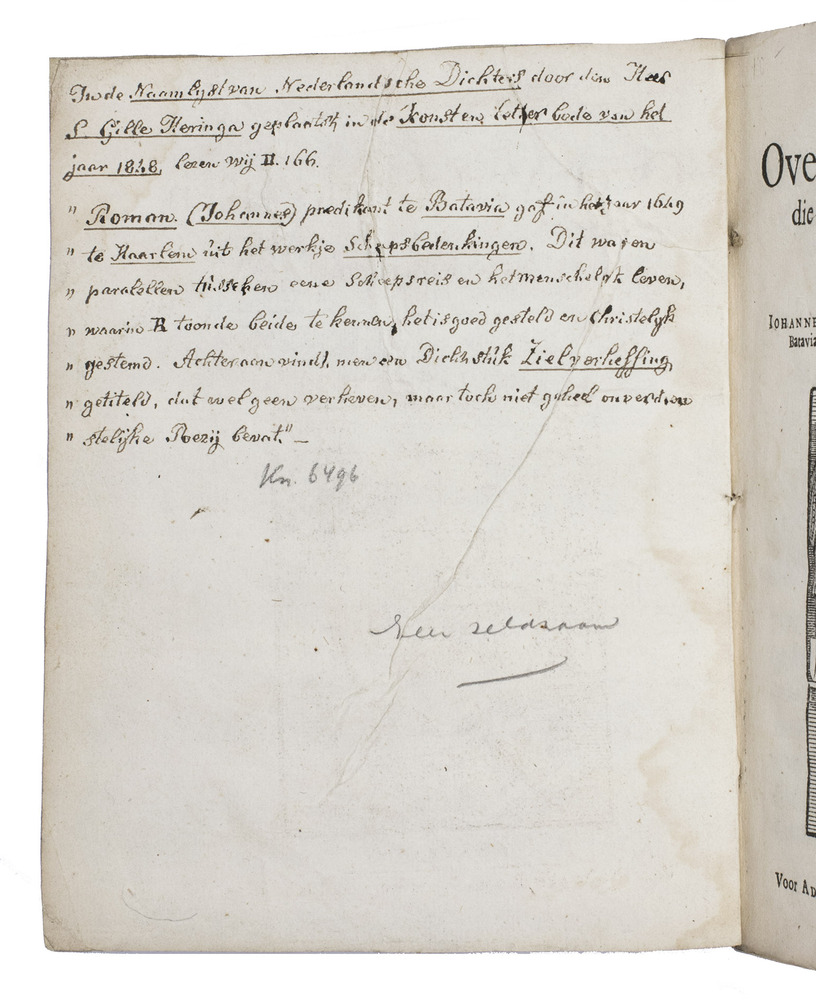 In de Naamlyst van Nederlandsche Dichters door den Heer
S. Gille Heringa geplaatst in de Konst en letterbode van het
jaar 1848, lezen wij II. 166.
" Roman. (Johannes) predikant te Batavia gaf in het jaar 1649
" te Haarlem uit het werkje Scheepsbedenkingen. Dit waren
" paralellen tusschen eene Scheepsreis en het menschelyk leven,
" waarin R toonde beide te kennen, het is goed gesteld en Christelyk
" gestemd. Achteraan vindt men een Dichtstuk Zielverheffing
" getiteld, dat wel geen verheven, maar toch niet geheel onverdien
" stelijke Poezij bevat." —
Kn. 6496
Zeer seldsaam
Ove
die
IOHANNE
Batavia
Voor AD